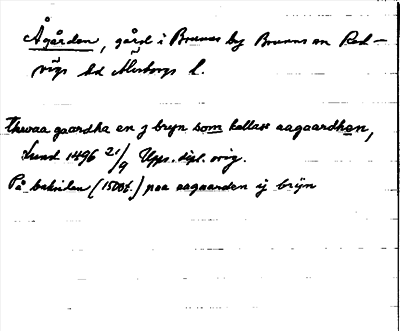 Ågården, gård i Brunns by Brunns sn Red-
vägs hd Älvsborgs l.
thwaa gaardha en j bryn som kallass aagaardhen,
Lund 1496 21/9 Upps. dipl. orig.
På baksidan (1500t.) paa aagaarden ij brÿn